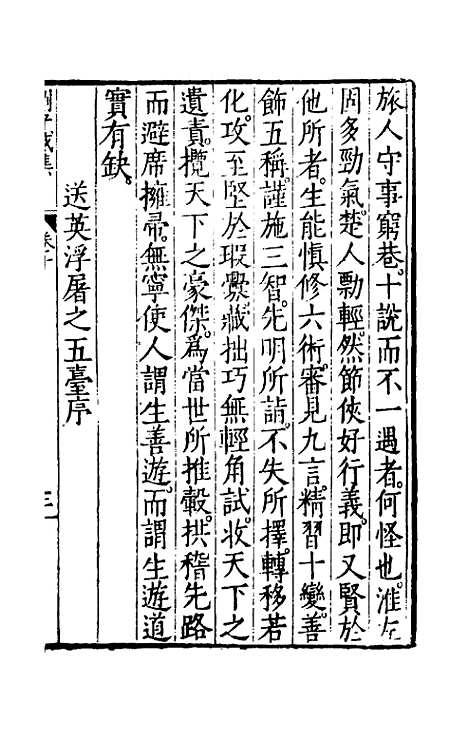 旅人守事窮巷。十說而不一遇者。何怪也。淮左
固多勁氣。楚人剽輕。然節俠好行義。即又賢於
他所者。生能慎修六術。審見九言。精習十變。善
飾五稱。謹施三智。先明所詣。不失所擇。轉移若
化。攻至堅於瑕釁。藏拙巧無輕角試。收天下之
遺責。攬天下之豪傑。為當世所推轂。拱稽先路
而避席擁帚。無寧使人謂生善遊。而謂生遊道
實有缺。
送英浮屠之五臺序
子威集
卷十
三